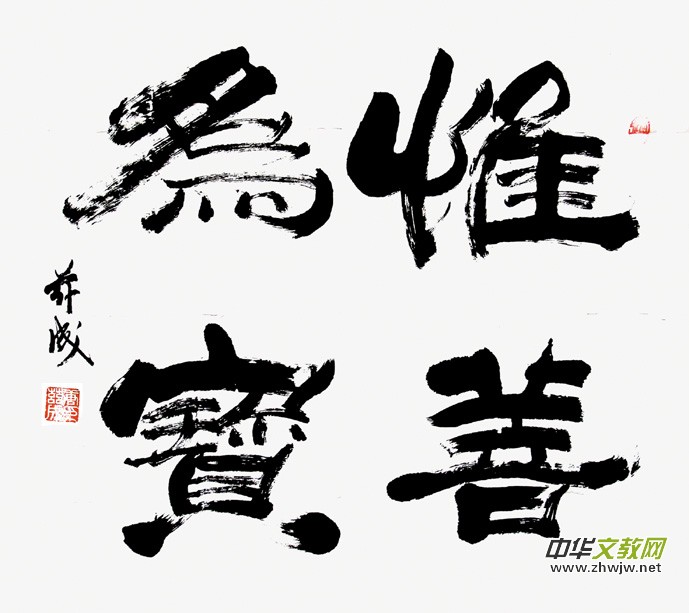 惟善
為寶
中华文教网
www.zhwjw.net